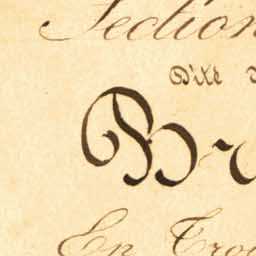 Section
Dite
Br
En Troi